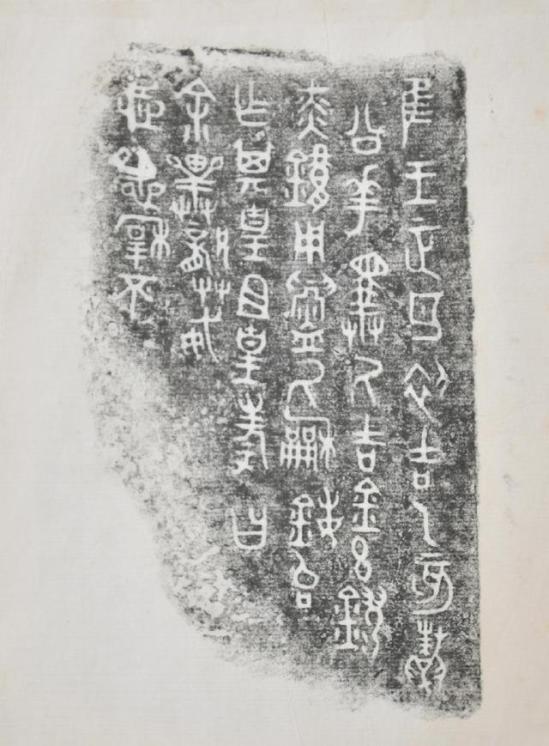 隹王正月初吉乙亥鼄
公華擇厥吉金玄鏐
赤鏞用鑄厥龢鐘台
乍其皇且皇考曰
余畢龏威
忌淑穆不